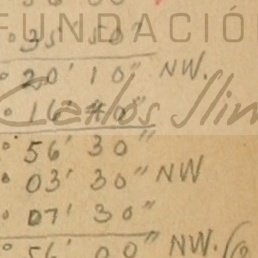 FUNDACIÓ
° 35' 50"
° 20' 10" NW.
Carlos Slim
° 16' 40"
° 56' 30"
° 03' 30" NW
° 07' 30"
° 56' 00" NW.